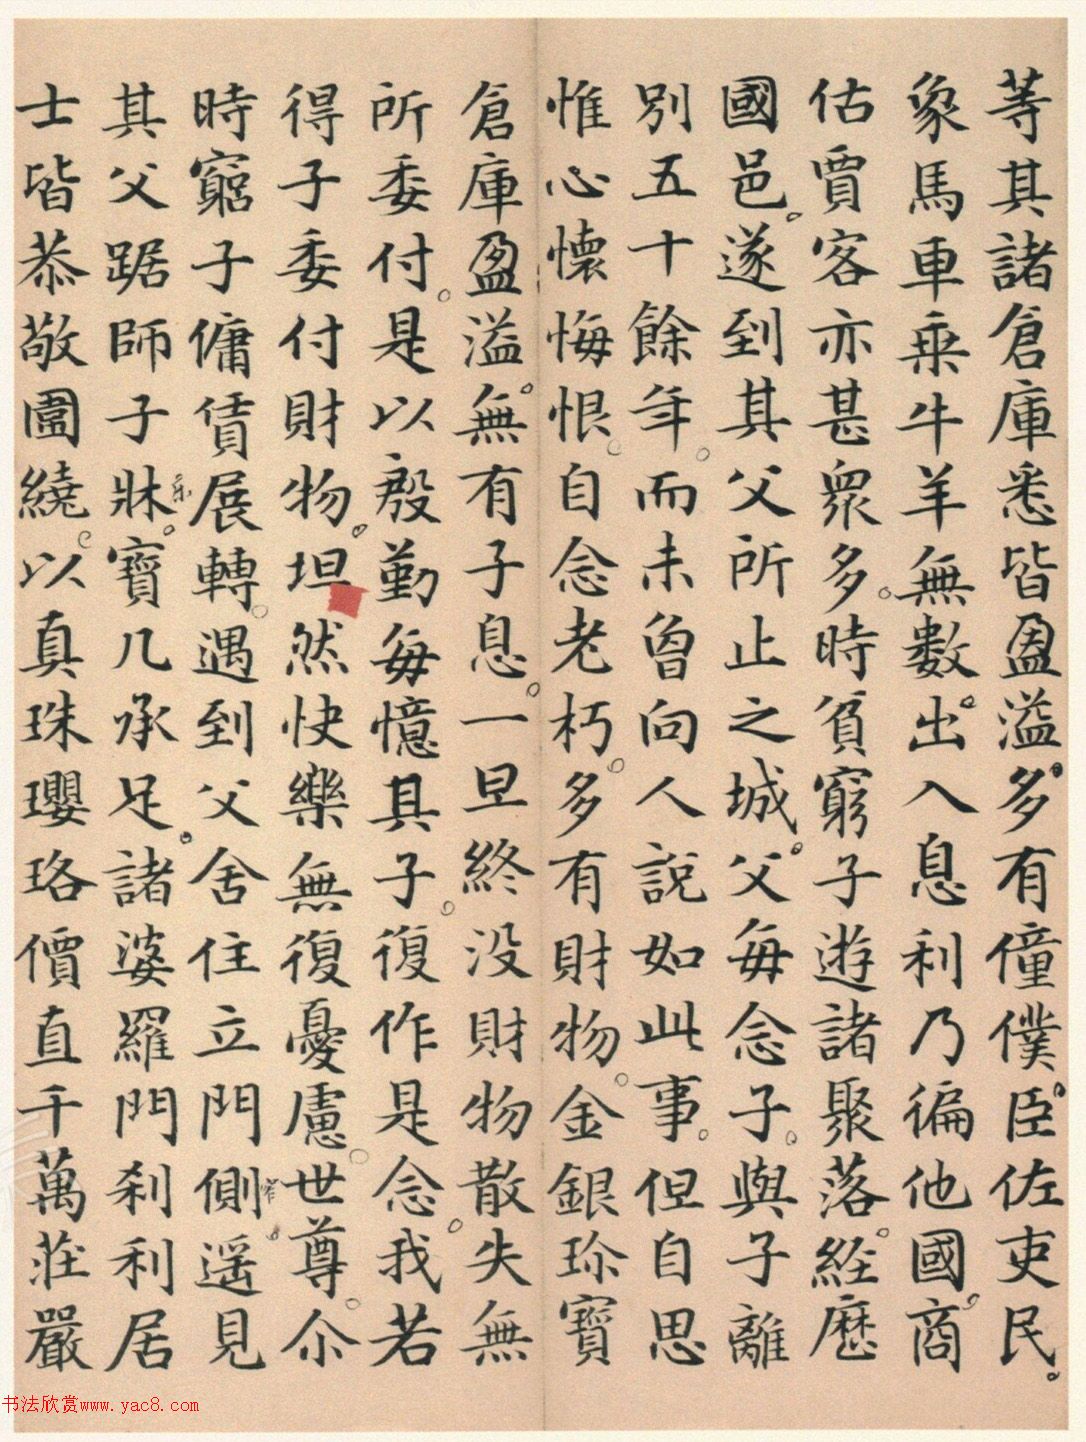 等其諸倉庫悉皆盈溢多有僮僕臣佐吏民
象馬車乘牛羊無數出入息利乃徧他國商
估賈客亦甚眾多時貧窮子遊諸聚落經歷
國邑遂到其父所止之城父每念子與子離
別五十餘年而未曾向人說如此事但自思
惟心懷悔恨自念老朽多有財物金銀珍寶
倉庫盈溢無有子息一旦終没財物散失無
所委付是以殷勤每憶其子復作是念我若
得子委付財物坦然快樂無復憂慮世尊尒
時窮子傭賃展轉遇到父舍住立門側遥見
其父踞師子牀寶几承足諸婆羅門刹利居
士皆恭敬圍繞以真珠瓔珞價直千萬莊嚴
书法欣赏www.yac8.com